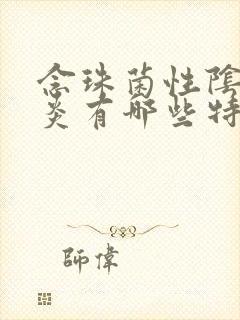 念珠菌性陰
炎有哪些特
師偉